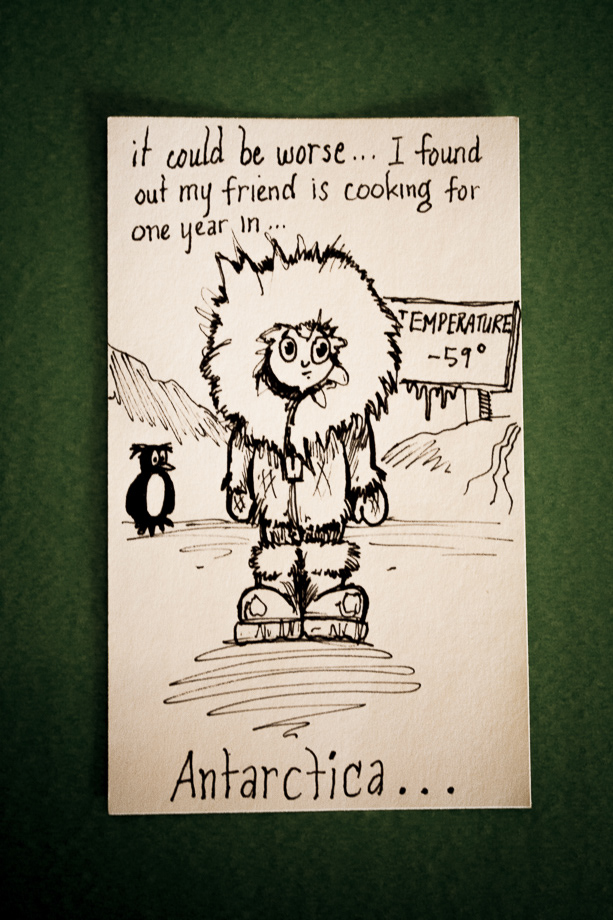 it could be worse... I found
out my friend is cooking for
one year in...
TEMPERATURE
-59°
Antarctica...